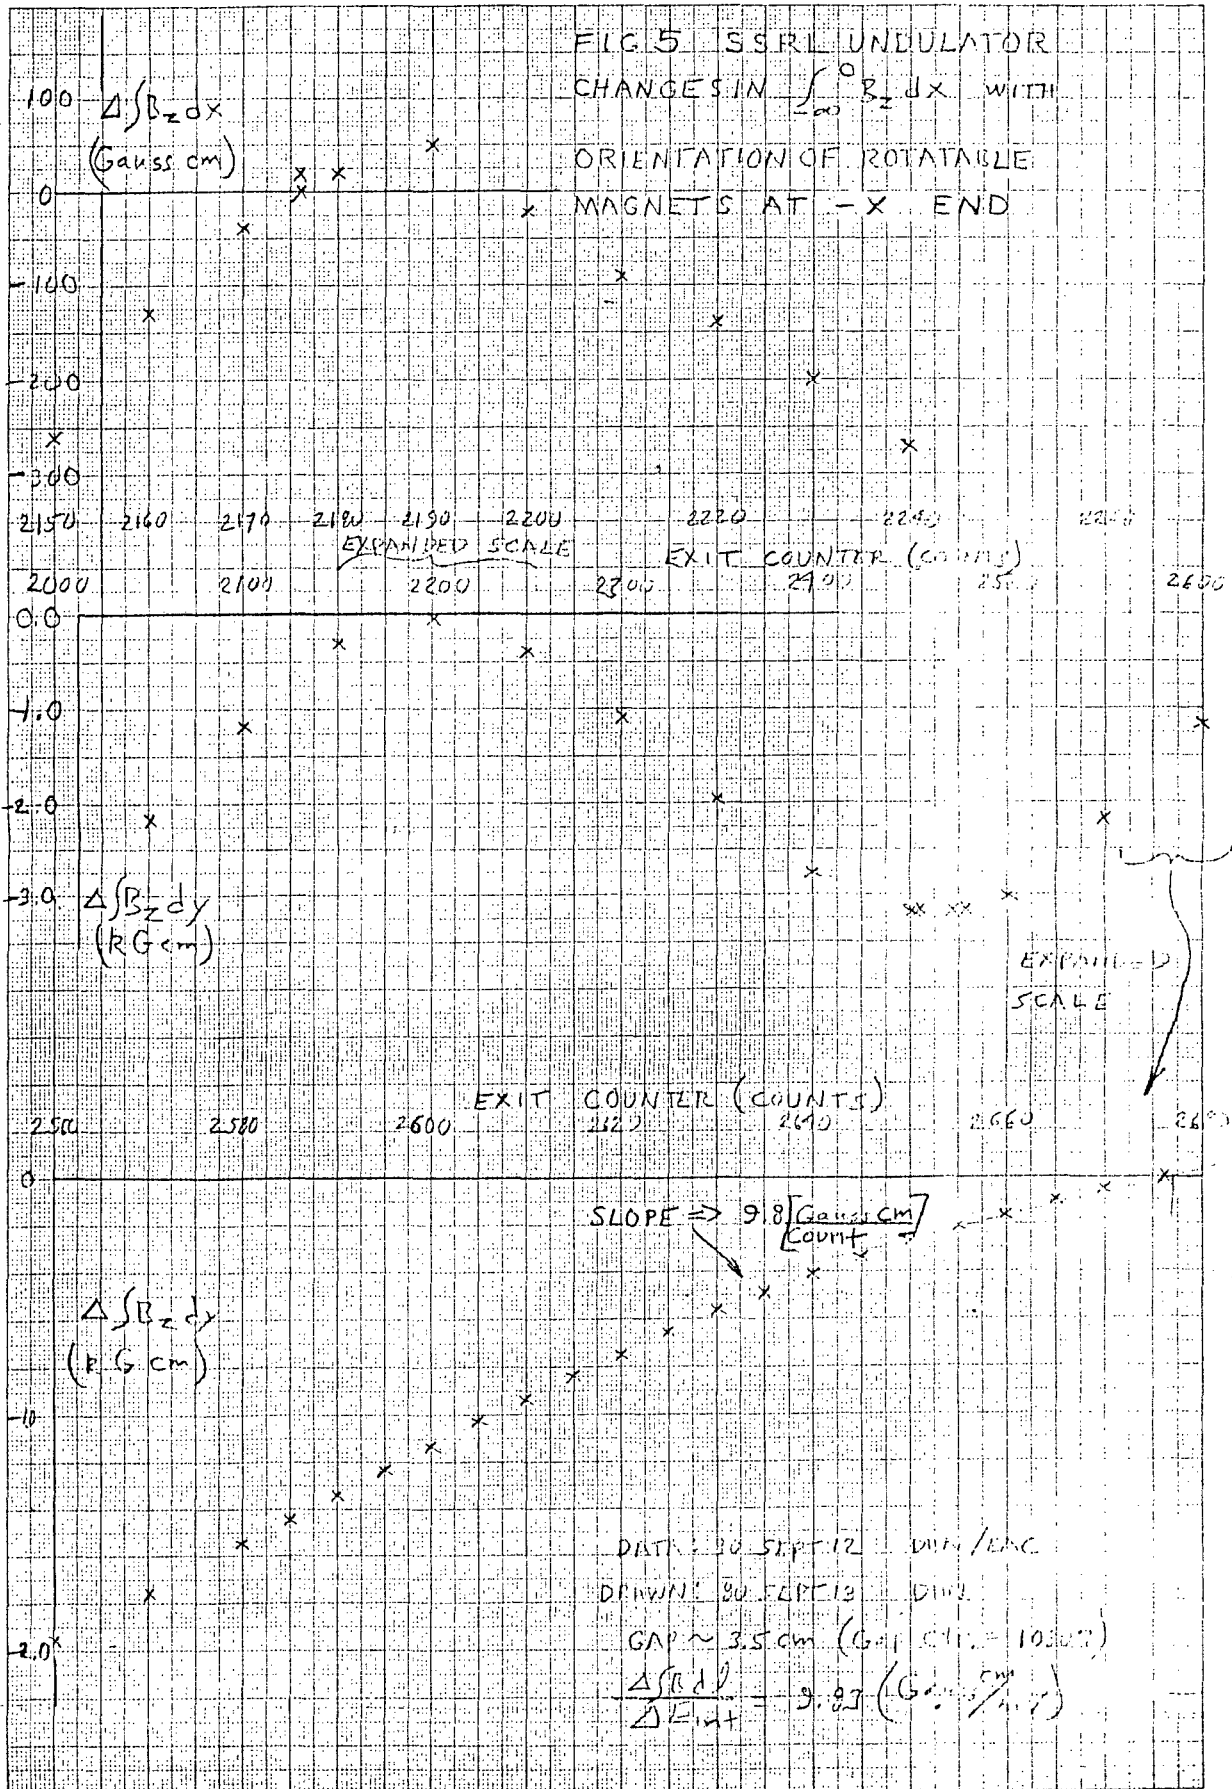 FIG 5 SSRL UNDULATOR
CHANGES IN ∫_{-∞}^{0} B_z dx WITH
ORIENTATION OF ROTATABLE
MAGNETS AT -X END
Δ∫B_z dx
(Gauss cm)
100
0
-100
-200
-300
2150 2160 2170 2180 2190 2200 2220 2240
EXPANDED SCALE
EXIT COUNTER (COUNTS)
2000 2100 2200 2300 2400 2600
0.0
-1.0
-2.0
-3.0
Δ∫B_z dy
(kG cm)
EXPANDED
SCALE
EXIT COUNTER (COUNTS)
2580 2600 2640 2660
0
SLOPE ⇒ 9.8 [Gauss cm / Count]
Δ∫B_z dy
(k G cm)
-10
-2.0
DATA: 30 SEPT 12
DRAWN: 30 SEPT 13
GAP ~ 3.5 cm